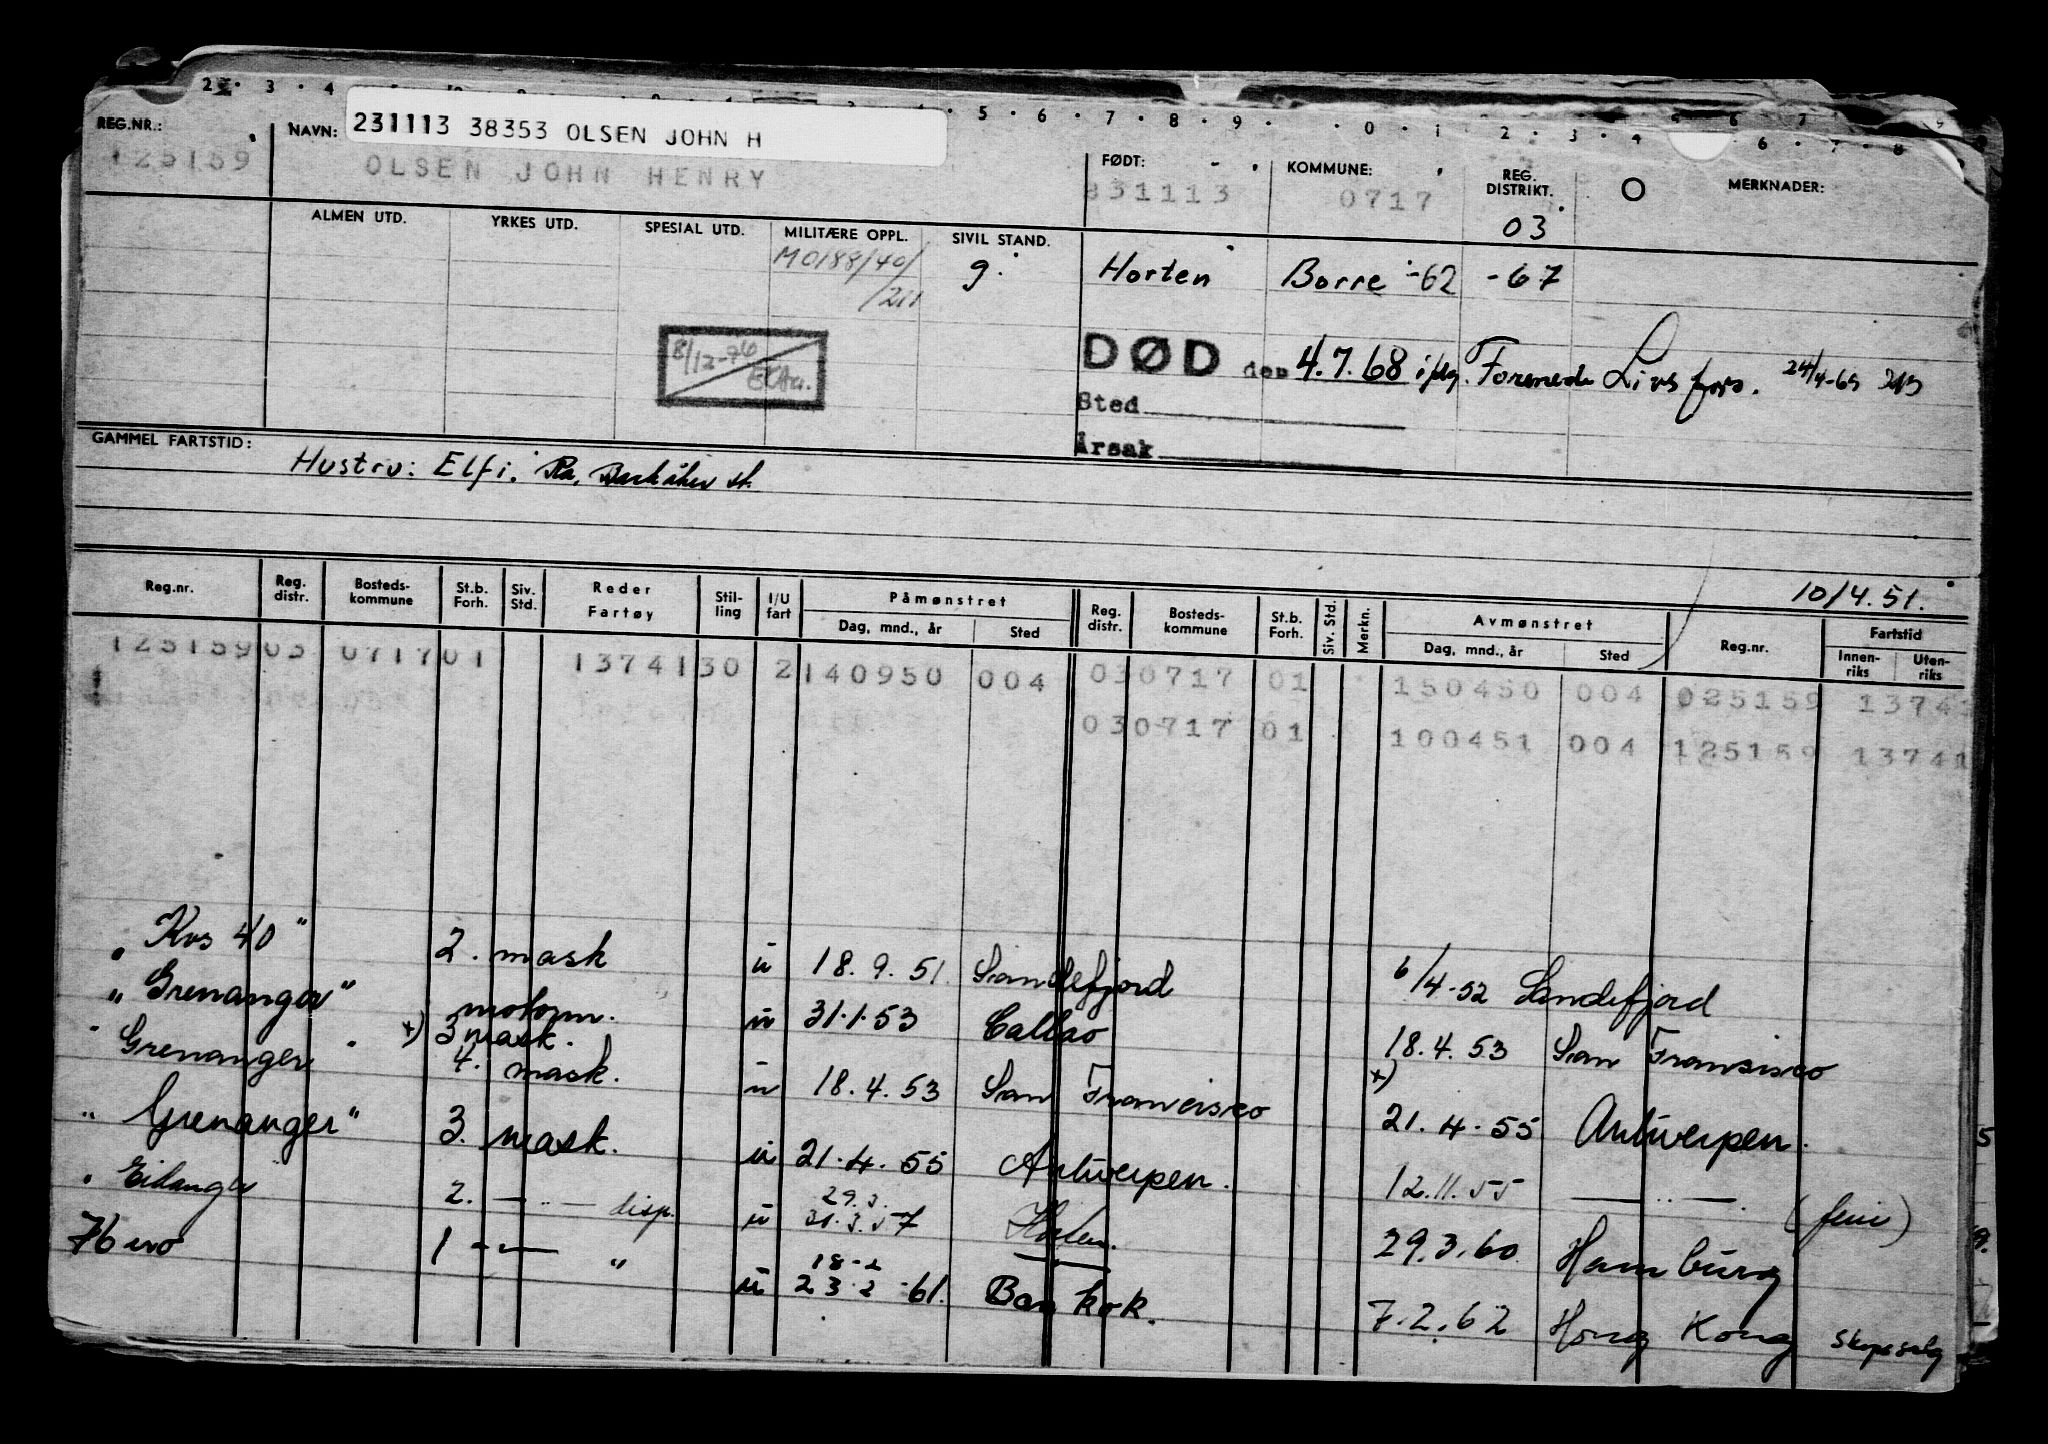 231113 38353 OLSEN JOHN H
REG.NR.: NAVN: FØDT: KOMMUNE: REG. DISTRIKT. MERKNADER:
125159 OLSEN JOHN HENRY 231113 0717 03
ALMEN UTD. YRKES UTD. SPESIAL UTD. MILITÆRE OPPL. SIVIL STAND.
M0188/40/ g. Horten Borre -62 -67
/211
8/12-76
DØD den 4.7.68 iflg. Forenede Livsfors. 24/4-69
Sted
Årsak
GAMMEL FARTSTID:
Hustru: Elfi.
10/4.51.
Reg.nr. Reg. distr. Bosteds- kommune St.b. Forh. Siv. Std. Reder Fartøy Stil- ling I/U fart Påmønstret Reg. distr. Bosteds- kommune St.b. Forh. Siv. Std. Merkn. Avmønstret Reg.nr. Fartstid
Dag, mnd., år Sted Dag, mnd., år Sted Innen- riks Uten- riks
125159 03 0717 01 13741 30 2 140950 004 03 0717 01 150450 004 025159 1374
03 0717 01 100451 004 125159 13741
"Kos 40" 2. mask u 18.9.51. Sandefjord 6/4-52 Sandefjord
"Grenanger" motorm. u 31.1.53 Callao 18.4.53 San Fransisco
"Grenanger" x) 3 mask.
4. mask. u 18.4.53 San Francisco x) 21.4.55 Antwerpen.
"Grenanger" 3. mask. u 21.4.55 Antwerpen. 12.11.55 — " — (ferie)
"Eidanger 2. — " — disp. u 29.3. 31.3.57 29.3.60 Hamburg
1 — " — " u 18-2 23-2-61. Bankok. 7.2.62 Hong Kong Skipssalg